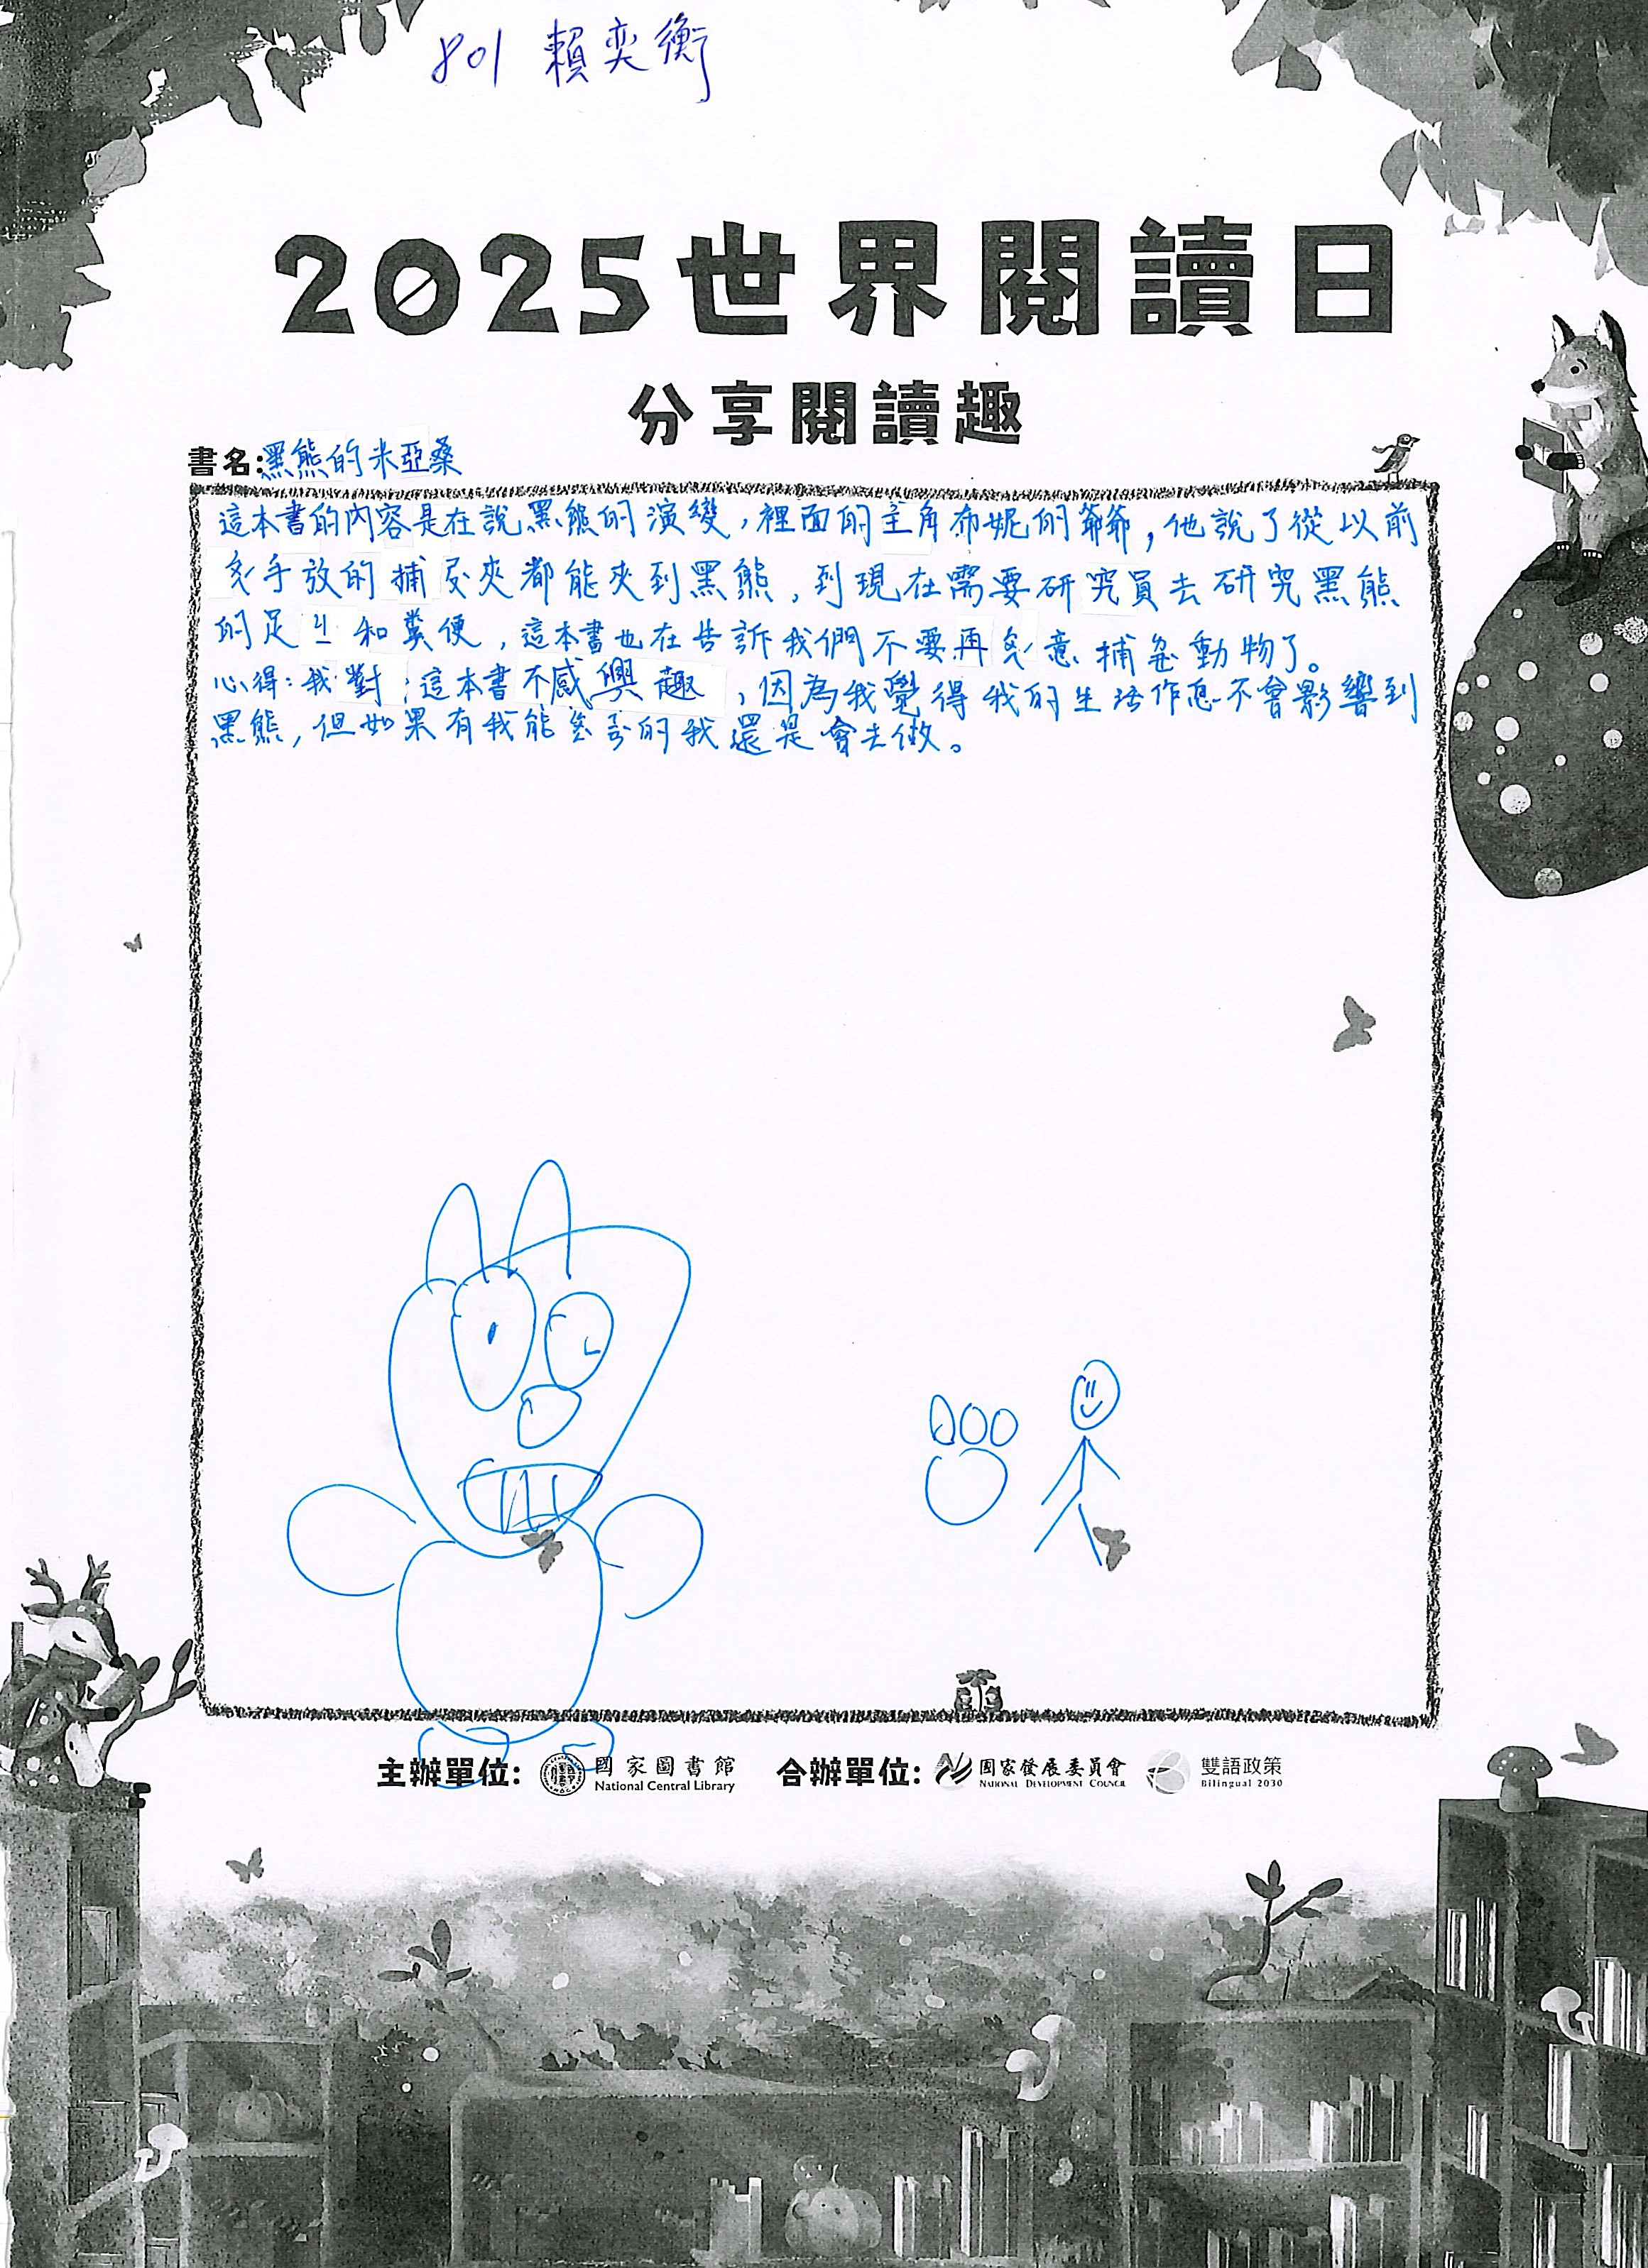 801 賴奕衡
2025世界閱讀日
分享閱讀趣
書名:黑熊的米亞桑
這本書的內容是在說黑熊的演變，裡面的主角布妮的爺爺，他說了從以前
手放的捕 夾都能夾到黑熊，到現在需要研究員去研究黑熊
的足 和糞便，這本書也在告訴我們不要再 意捕 動物了。
心得：我對這本書不感興趣，因為我覺得我的生活作息不會影響到
黑熊，但如果有我能 的我還是會去做。
主辦單位: 國家圖書館 National Central Library 合辦單位: 國家發展委員會 NATIONAL DEVELOPMENT COUNCIL 雙語政策 Bilingual 2030